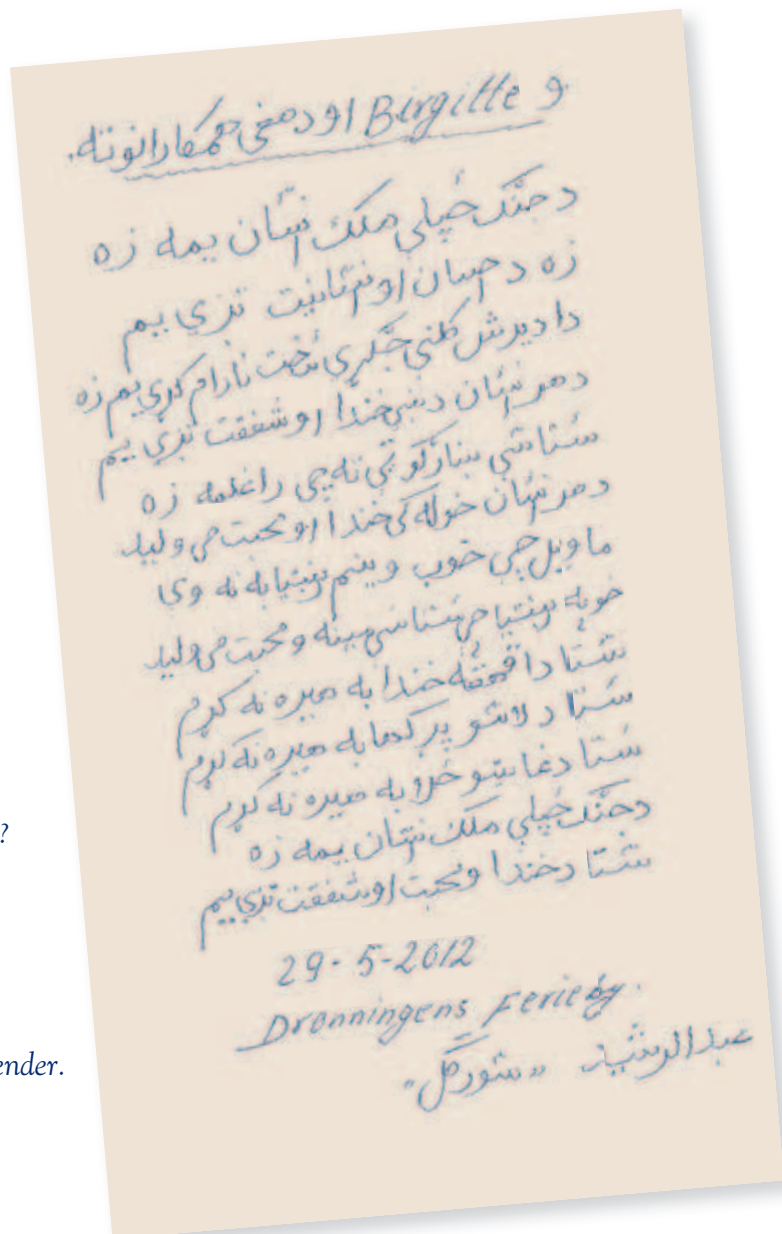 و Birgitte او د هغی همکارانو ته.
د جنګ ځپلي ملک انسان یمه زه
زه د احسان او انسانیت تږی یم
دا ډیرش کلنی جګړی سخت نارام کړی یم زه
د هر انسان د خندا او شفقت تږی یم
ستاسی ښار ته چی راغلمه زه
د هر انسان خوله کی خندا او محبت می ولید
ما ویل چی خوب وینم رښتیا به نه وی
خو په رښتیا می ستاسی مینه و محبت می ولید
ستا دا قهقهه خندا به هیره نه کړم
ستا د لاسو پړکها به هیره نه کړم
ستا د غاښو به هیره نه کړم
د جنګ ځپلي ملک انسان یمه زه
?
ستا د خندا و محبت او شفقت تږی یم
29-5-2012
Dronningens Ferieby.
ender.
عبدالرشید "سورګل"